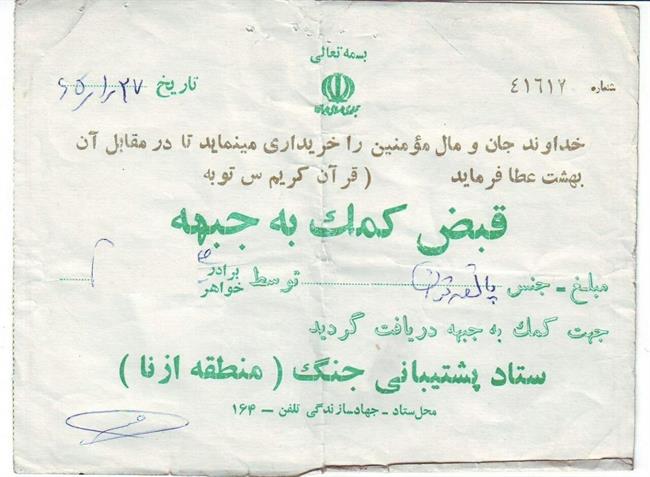 بسمه تعالی
شماره ۴۱۶۱۷
جمهوری اسلامی ایران
تاریخ ۲۷
خداوند جان و مال مؤمنین را خریداری مینماید تا در مقابل آن
بهشت عطا فرماید ( قرآن کریم س توبه
قبض کمك به جبهه
مبلغ ـ جنس توسط برادر
خواهر
جهت کمك به جبهه دریافت گردید
ستاد پشتیبانی جنگ ( منطقه ازنا )
محل ستاد ـ جهاد سازندگی تلفن ـ ۱۶۴